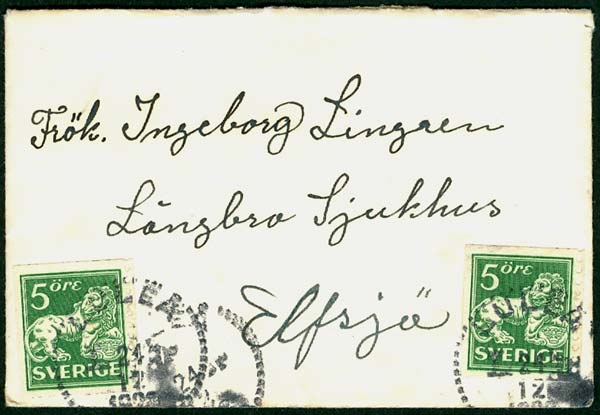 Frök. Ingeborg Lingaen
Långbro Sjukhus
Elfsjö
5 ÖRE
SVERIGE
5 ÖRE
SVERIGE
24
12
24
12